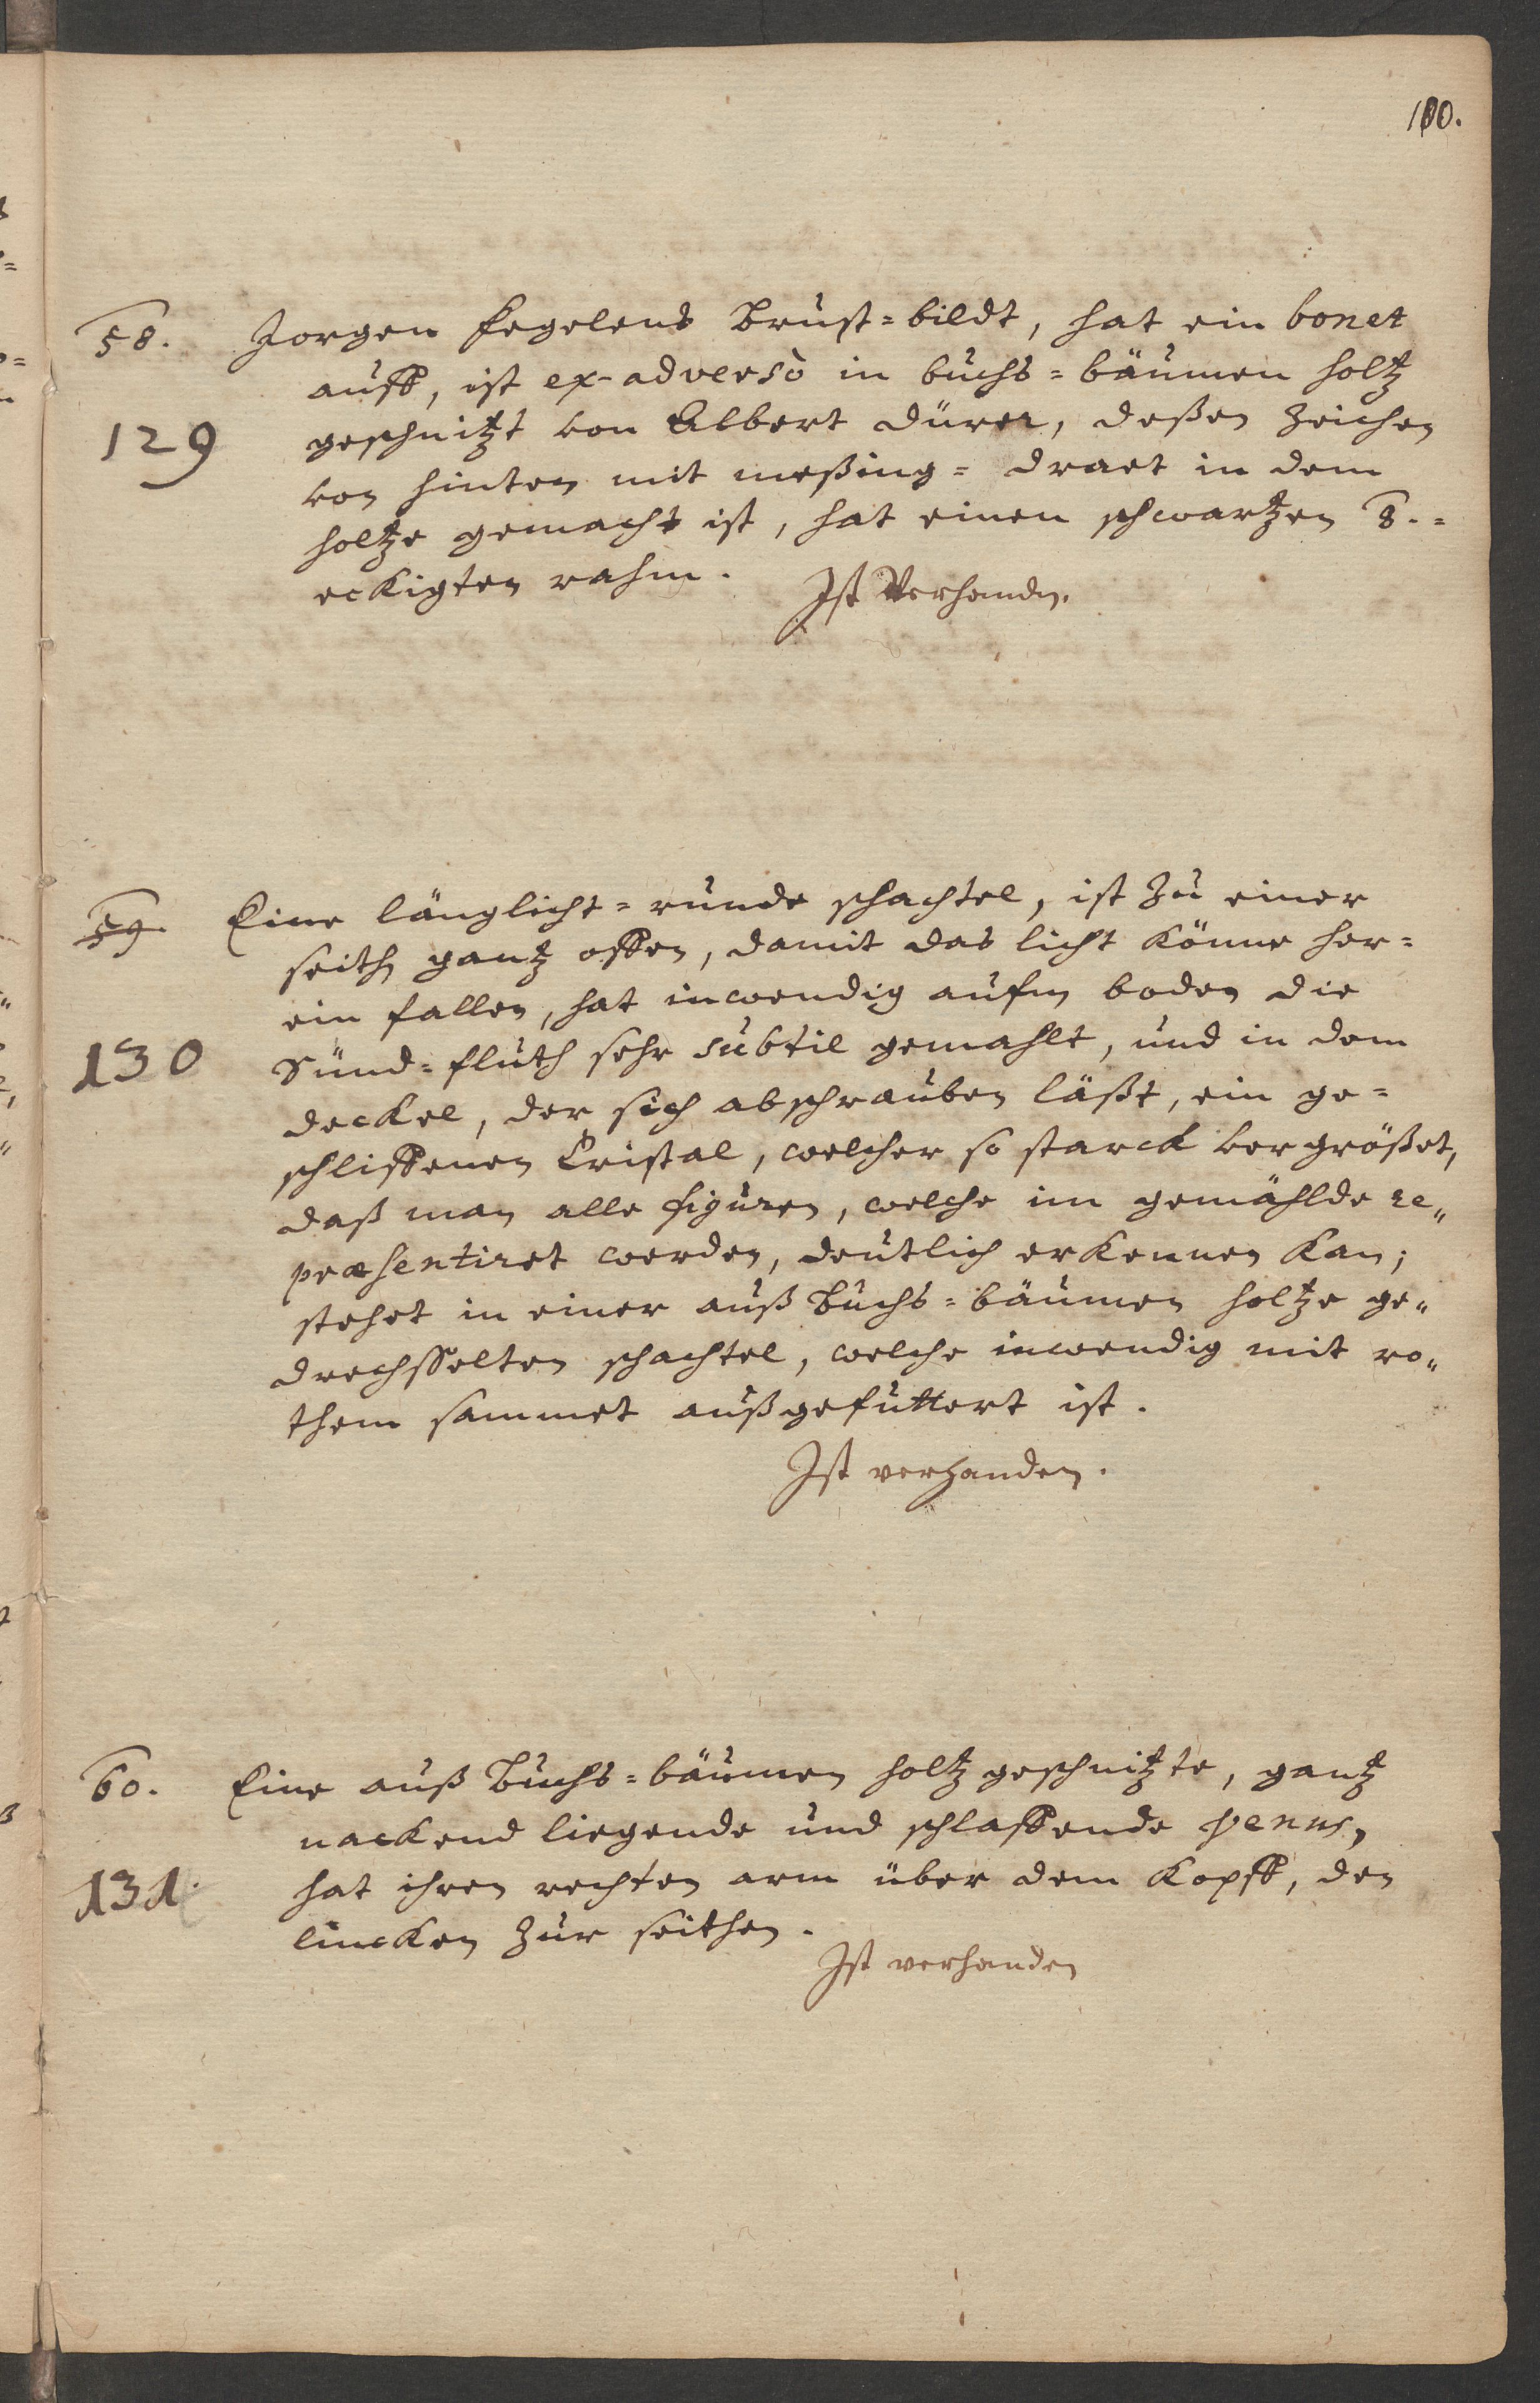 100.
58. Jorgen Fegelens Brust=bildt, hat ein bonet
auff, ist ex-adverso in buchs=bäumen holtz
129 geschnitzt von Albert Dürer, deßen Zeichen
von hinten mit meßing=draet in dem
holtze gemacht ist, hat einen schwartzen 8.=
eckigten rahm.
Ist Verhanden.
59. Eine länglicht=runde schachtel, ist zu einer
seith gantz offen, damit das licht könne her=
ein fallen, hat inwendig aufm boden die
130 Sünd=fluth sehr subtil gemahlt, und in dem
deckel, der sich abschrauben läßt, ein ge=
schliffenen Cristal, welcher so starck vergrößet,
daß man alle figuren, welche im gemählde re„
præsentiret werden, deutlich erkennen kan;
stehet in einer auß Buchs=bäumen holtze ge„
drechsselten schachtel, welche inwendig mit ro„
them sammet außgefuttert ist.
Ist verhanden.
60. Eine auß Buchs=bäumen holtz geschnitzte, gantz
nackend liegende und schlaffende Venus,
131. hat ihren rechten arm über dem Kopff, den
lincken zur seithen.
Ist verhanden